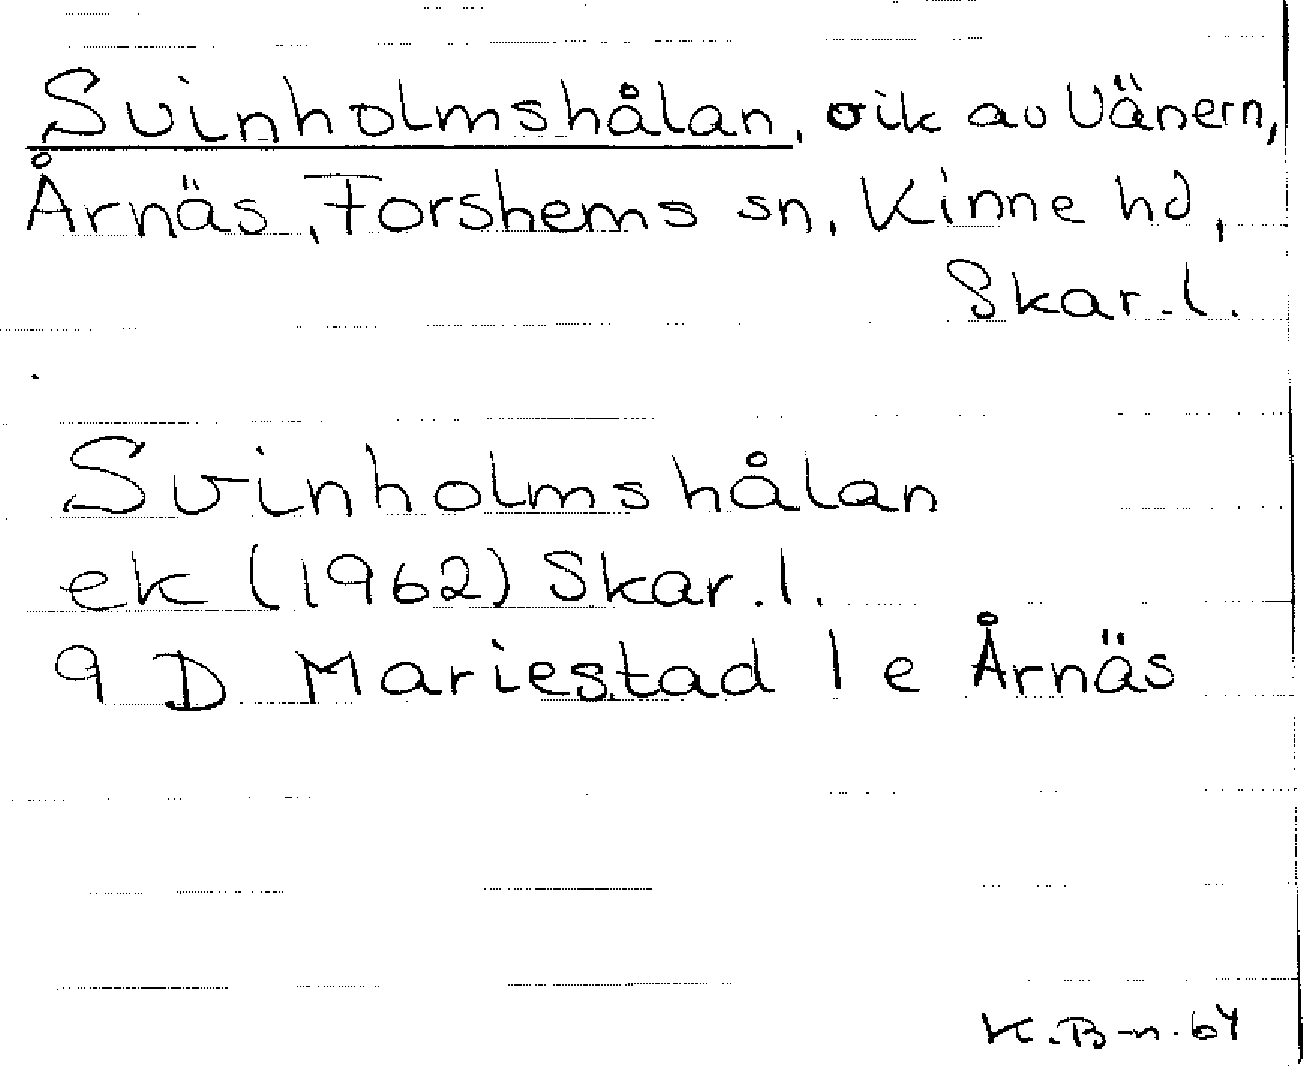 Svinholmshålan, vik av Vänern,
Årnäs, Forshems sn, Kinne hd,
Skar. l.
Svinholmshålan
ek (1962) Skar. l.
9 D Mariestad 1 e Årnäs
K. B-n. 64